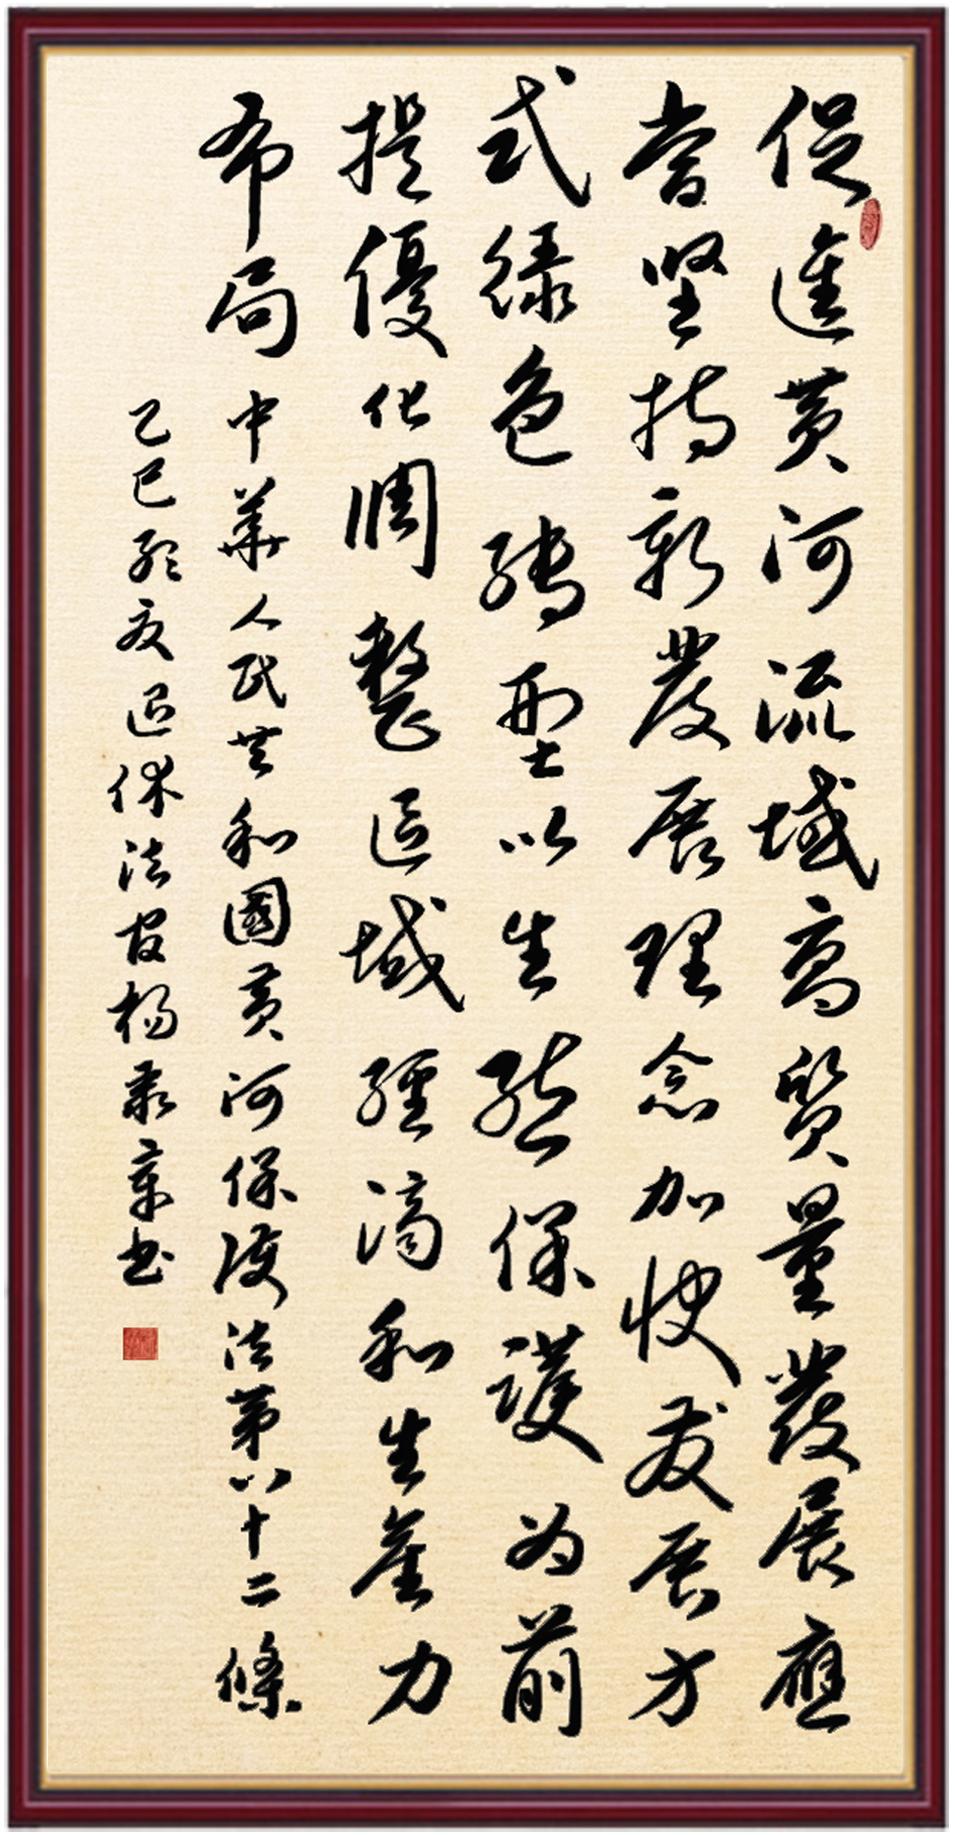 促進黄河流域高質量發展應
當堅持新發展理念加快发展方
式綠色轉型以生態保護为前
提優化調整區域經濟和生產力
布局 中華人民共和國黄河保護法第八十二條
乙巳夏退休法官楊章书